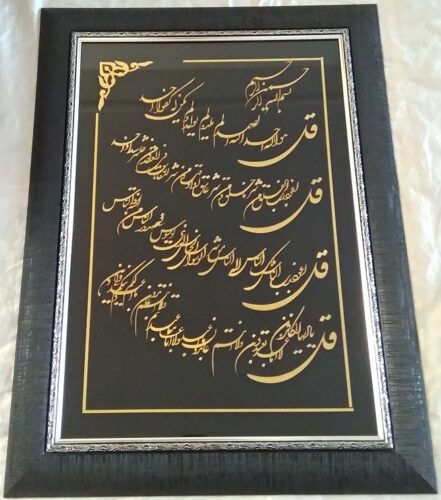 بسم الله الرحمن الرحیم
قل هو الله احد الله الصمد لم یلد و لم یولد و لم یکن له کفوا احد
قل اعوذ برب الفلق من شر ما خلق و من شر غاسق اذا وقب و من شر النفاثات فی العقد و من شر حاسد اذا حسد
قل اعوذ برب الناس ملک الناس اله الناس من شر الوسواس الخناس الذی یوسوس فی صدور الناس من الجنة و الناس
قل یا ایها الکافرون لا اعبد ما تعبدون و لا انتم عابدون ما اعبد و لا انا عابد ما عبدتم و لا انتم عابدون ما اعبد لکم دینکم ولی دین